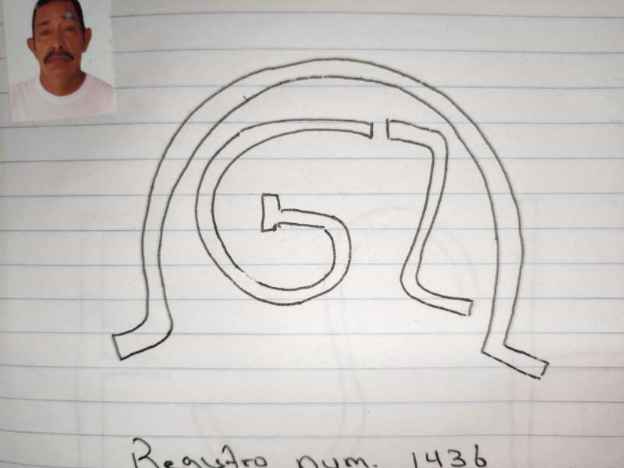 Registro num. 1436